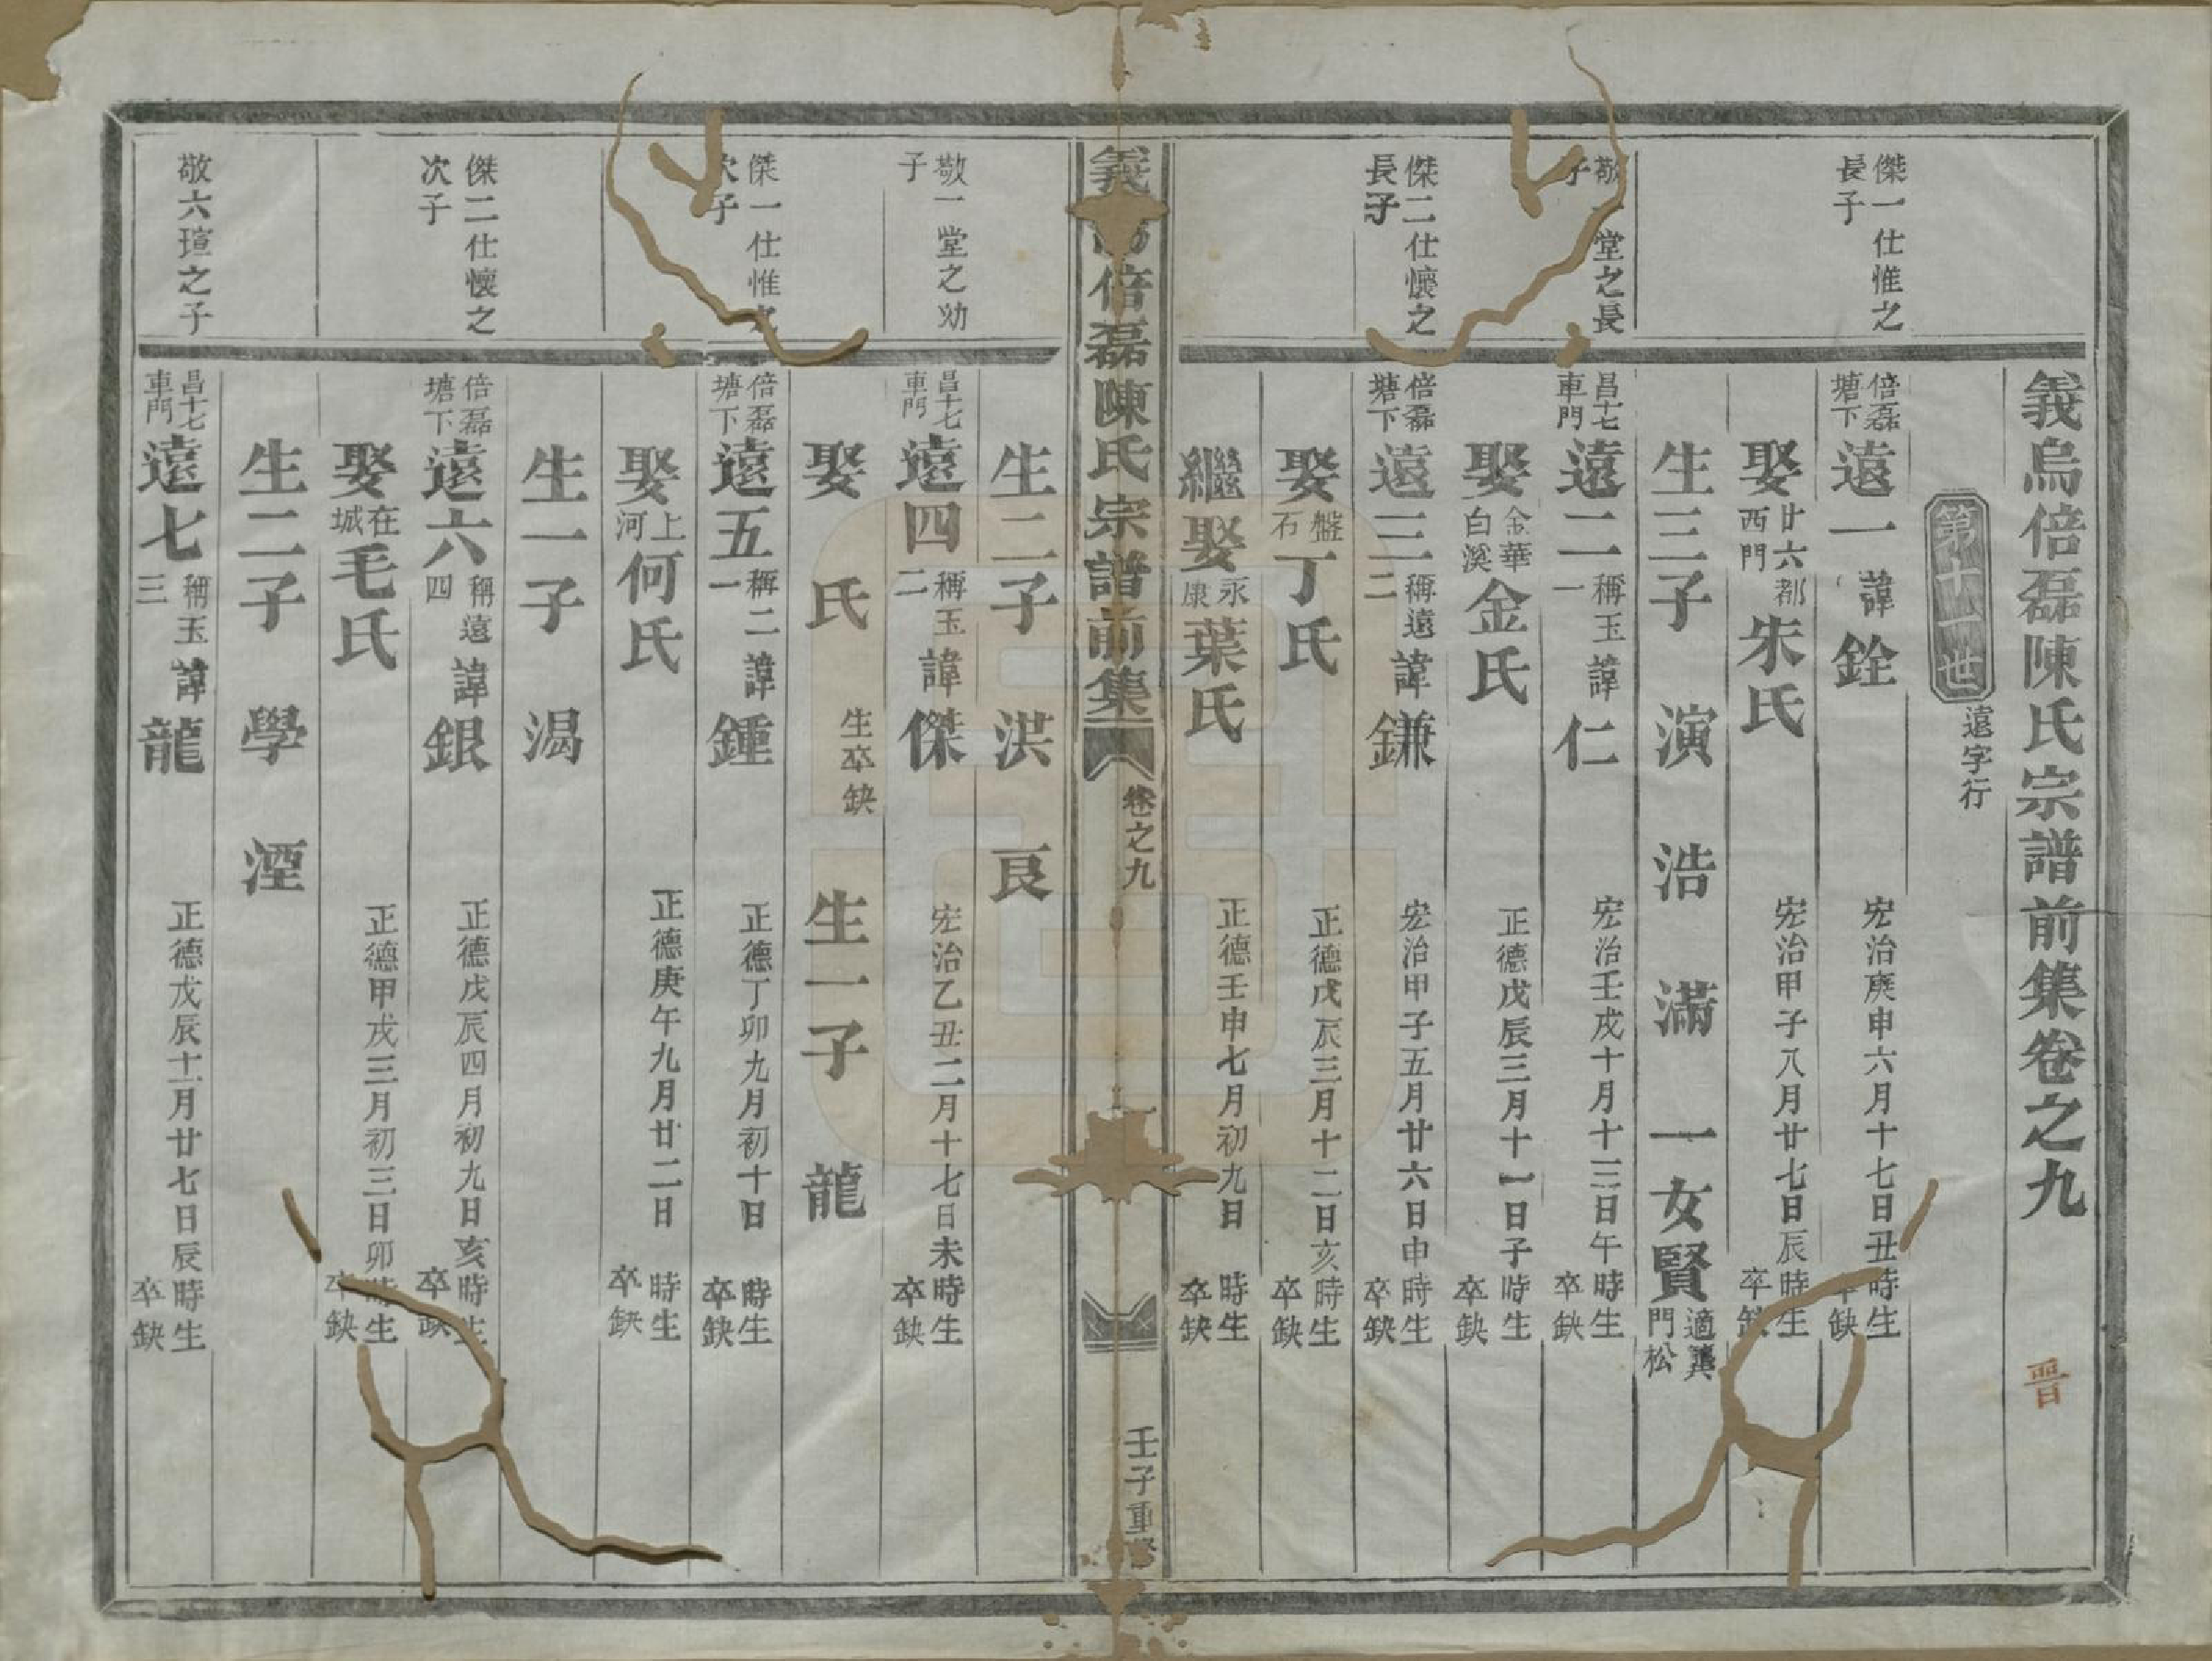 義烏倍磊陳氏宗譜前集卷之九
晋
第十一世
遠字行
傑一仕惟之長子
倍磊塘下遠一諱銓 宏治庚申六月十七日丑時生卒缺
娶廿六都西門朱氏 宏治甲子八月廿七日辰時生卒缺
生三子 演 浩 滿 一女賢適龔門松
敬一堂之長子
昌十七車門遠二稱玉一諱仁 宏治壬戌十月十三日午時生卒缺
娶金華白溪金氏 正德戊辰三月十一日子時生卒缺
傑二仕懷之長子
倍磊塘下遠三稱遠二諱鎌 宏治甲子五月廿六日申時生卒缺
娶盤石丁氏 正德戊辰三月十二日亥時生卒缺
繼娶永康葉氏 正德壬申七月初九日時生卒缺
義烏倍磊陳氏宗譜前集 卷之九 一 壬子重修
生二子 洪 良
敬一堂之幼子
昌十七車門遠四稱玉二諱傑 宏治乙丑二月十七日未時生卒缺
娶 氏 生卒缺 生一子 龍
傑一仕惟之次子
倍磊塘下遠五稱二一諱鍾 正德丁卯九月初十日時生卒缺
娶上河何氏 正德庚午九月廿二日時生卒缺
生一子 渴
傑二仕懷之次子
倍磊塘下遠六稱遠四諱銀 正德戊辰四月初九日亥時生卒缺
娶在城毛氏 正德甲戌三月初三日卯時生卒缺
生二子 學 湮
敬六瑄之子
昌十七車門遠七稱玉三諱龍 正德戊辰十一月廿七日辰時生卒缺